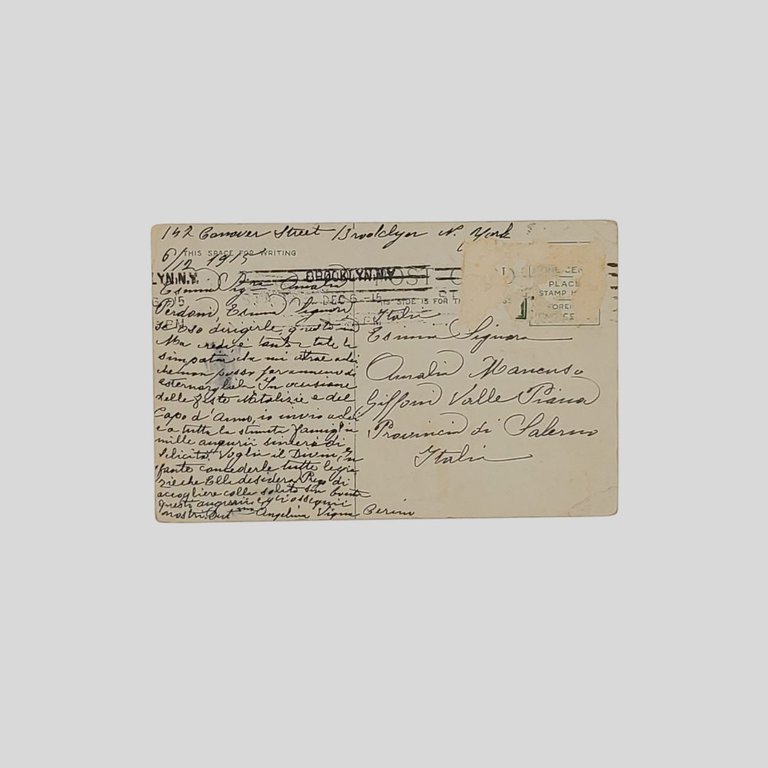 142 Conover Street Brooklyn N. York
THIS SPACE FOR WRITING
6/12 1915
POST C
LYN.N.Y.
BROOKLYN.N.Y.
Sig Amalia
DEC 6
THIS SIDE IS FOR TH
PLACE
STAMP H
Perdoni Esima Signora
se oso dirigerle questo
Ma credi è tanta tale la
simpatia che mi attrae a lei
che non posso far a meno di
esternargliela. In occasione
delle feste Natalizie e del
Capo d'Anno, io invio a lei
e a tutta la stimata famiglia
mille augurii sinceri di
felicità. Voglia il Divin In
fante concederle tutte le gra
zie che Elle desidera. Prego di
accogliere colla solita sua bontà
questi augurii, e gli ossequi
nostri. Angelina Vigna Cerino
Italia
Esima Signora
Amalia Mancuso
Giffoni Valle Piana
Provincia di Salerno
Italia